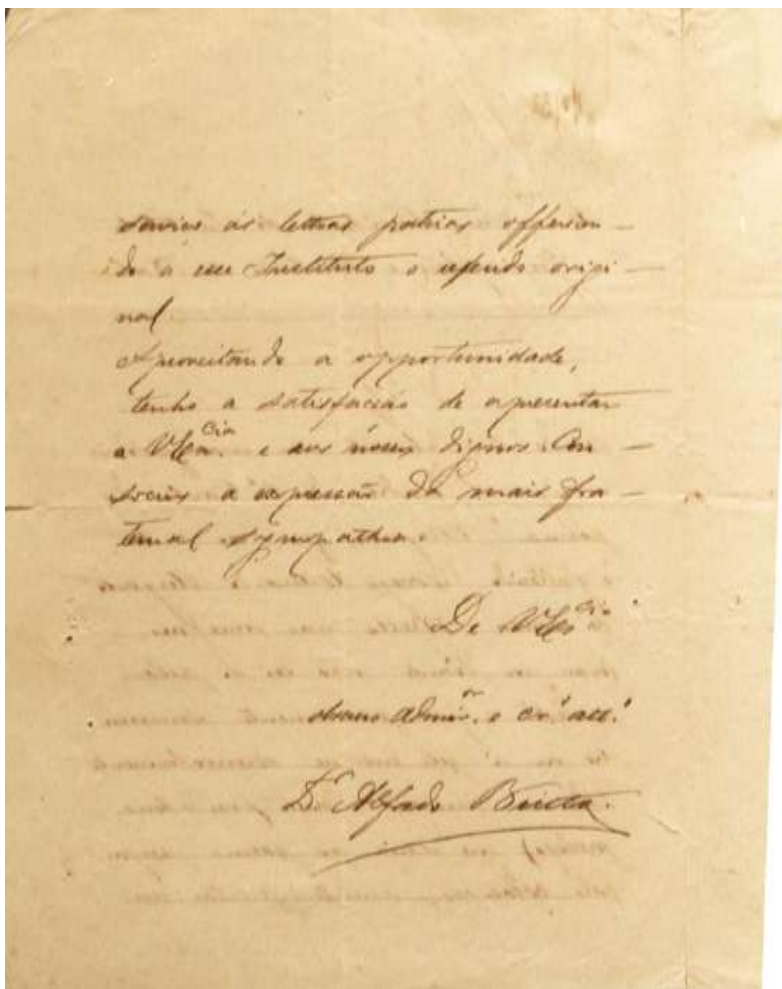 serviço ás lettras patrias offerecen-
do a esse Instituto o referido origi-
nal.
Aproveitando a opportunidade,
tenho a satisfacção de apresentar
a VExcia. e aos nossos dignos Con-
socios a expressão da mais fra-
ternal sympathia.
De VExcia
admor. e
Dr. Alfredo Britto.